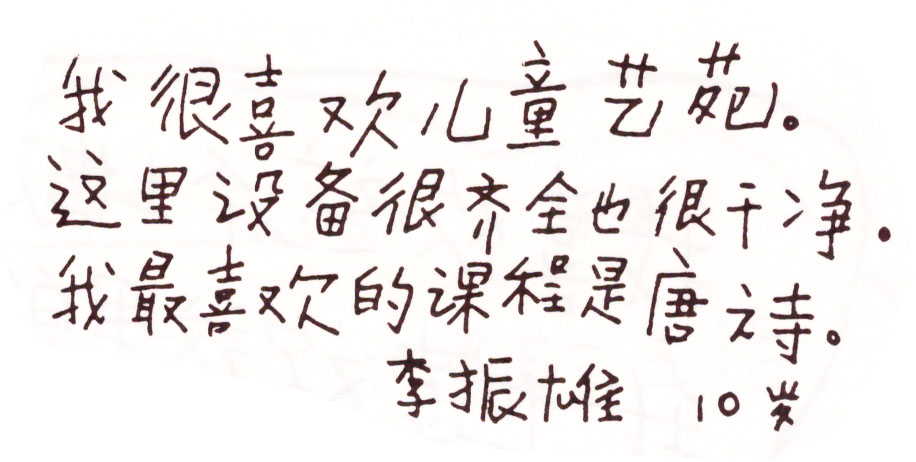 我很喜欢儿童艺苑。
这里设备很齐全也很干净.
我最喜欢的课程是唐诗。
李振雄 10岁